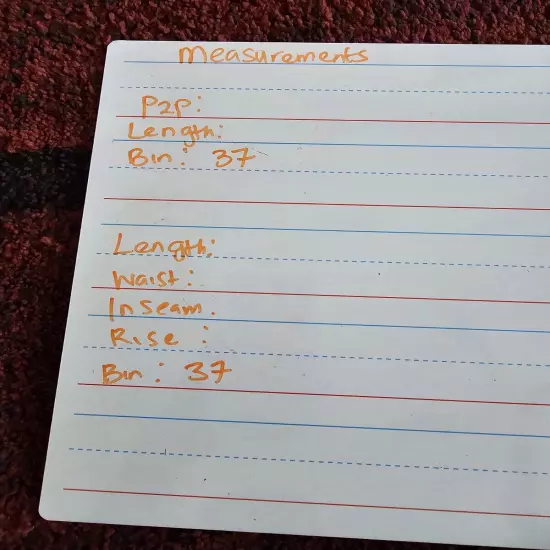 measurements
P2P:
Length:
Bin: 37
Length:
Waist:
Inseam.
Rise :
Bin: 37